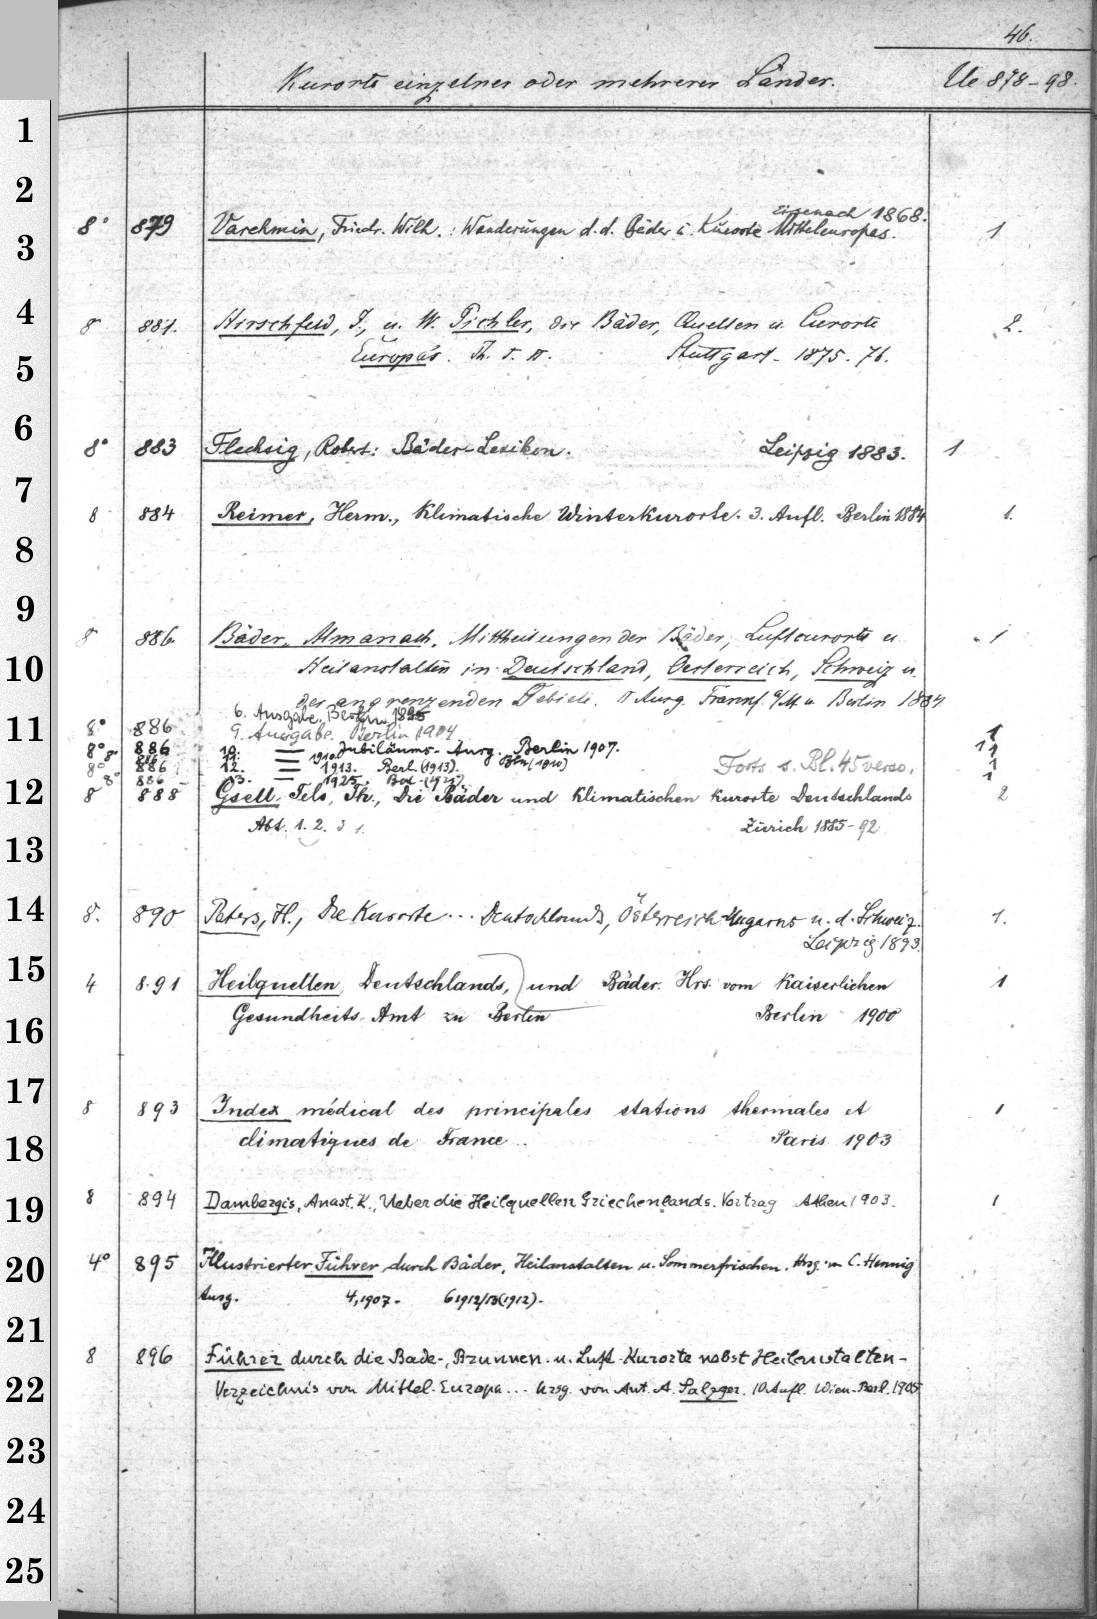 46.
Kurorte einzelner oder mehrerer Länder. Ue 878-98.
1
2
Eisenach 1868.
8° 879 Varchmin, Friedr. Wilh.: Wanderungen d. d. Bäder u. Kurorte Mitteleuropas. 1
3
4
8 881. Hirschfeld, J., u. W. Pichler, die Bäder, Quellen u. Curorte 2.
Europa's. Th. I. II. Stuttgart 1875-76.
5
6
8° 883 Flechsig, Robert: Bäder-Lexikon. Leipzig 1883. 1
7
8 884 Reimer, Herm., Klimatische Winterkurorte. 3. Aufl. Berlin 1884 1.
8
9
8 886. Bäder-Almanach, Mittheilungen der Bäder, Luftcurorte u. 1
10
Heilanstalten in Deutschland, Oesterreich, Schweiz u.
der angrenzenden Gebiete. II Ausg. Frankf. a/M. u. Berlin 1884
6. Ausgabe. Berlin 1895
11
8° 886 9. Ausgabe. Berlin 1904 1
8° 886 10. — Jubiläums-Ausg. Berlin 1907. 1
8° 886 11. — 1910. Bln (1910) 1
8° 886 12. — 1913. Berl. (1913). Forts. s. Bl. 45 verso. 1
8° 886 13. — 1925. (1925) 1
12
8 888 Gsell-Fels, Th., Die Bäder und klimatischen Kurorte Deutschlands 2
Abt. 1. 2. 3 1. Zürich 1885-92
13
14
8. 890 Peters, H., Die Kurorte ... Deutschlands, Österreich-Ungarns u. d. Schweiz. 1.
Leipzig 1893.
15
4 891 Heilquellen Deutschlands, und Bäder. Hrs. vom Kaiserlichen 1
Gesundheits-Amt zu Berlin Berlin 1900
16
17
8 893 Index médical des principales stations thermales et 1
climatiques de France .. Paris 1903
18
8 894 Dambergis, Anast. K., Ueber die Heilquellen Griechenlands. Vortrag Athen 1903. 1
19
4° 895 Illustrierter Führer durch Bäder, Heilanstalten u. Sommerfrischen. Hrsg. v. C. Hennig
20
Ausg. 4,1907. 6 1912/13 (1912).
21
8 896 Führer durch die Bade-, Brunnen- u. Luft-Kurorte nebst Heilanstalten-
22
Verzeichnis von Mittel-Europa ... hrsg. von Ant. A. Salzger. 10. Aufl. Wien-Berl. 1905
23
24
25